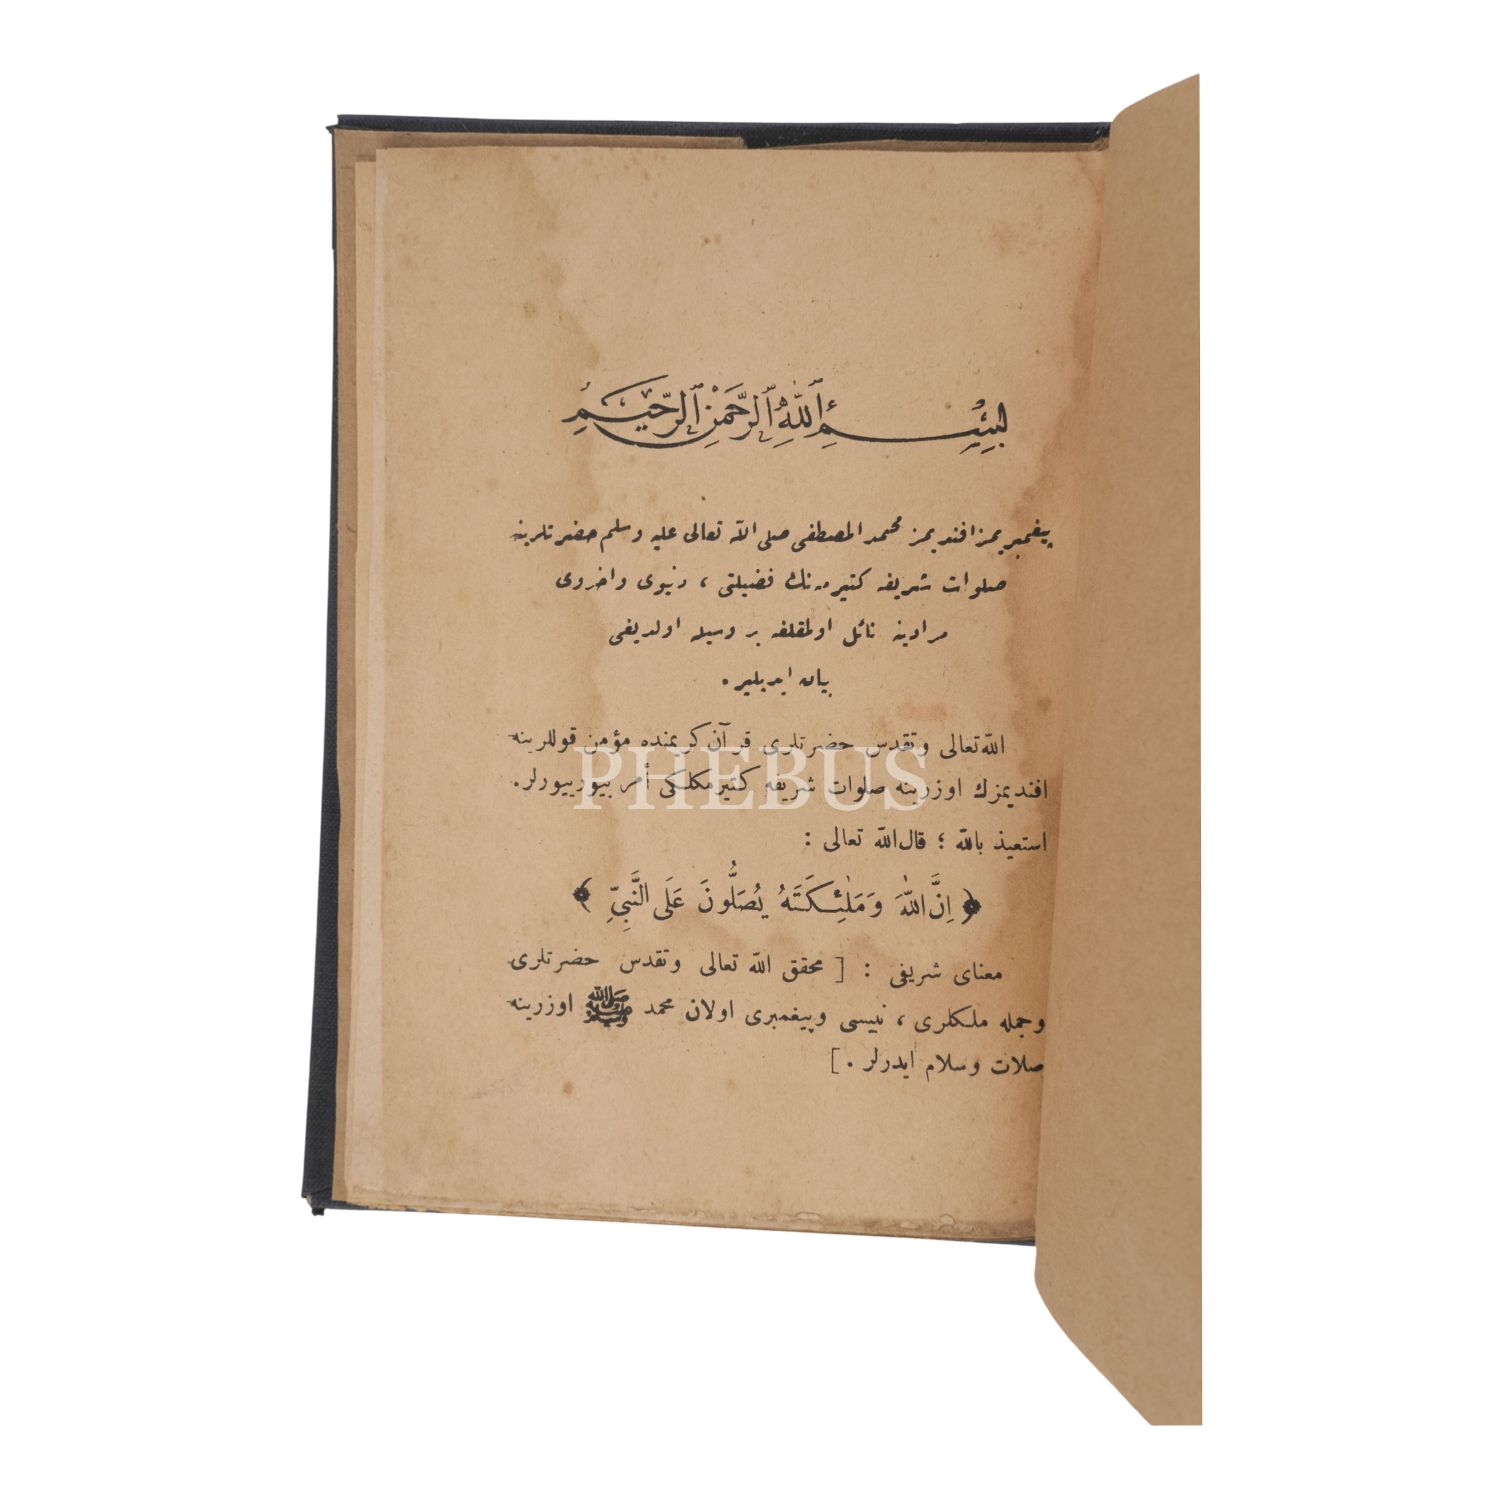 بِسْمِ اللّٰهِ الرَّحْمٰنِ الرَّحِيمِ
پیغمبریمز افندیمز محمد المصطفی صلی اللّه تعالی علیه وسلم حضرتلرینه
صلوات شریفه کتیرمه‌نك فضیلتی ، دنیوی واخروی
مرادینه نائل اولمقلغه بر وسیله اولدیغی
بیان ایدیلیر .
اللّه تعالی وتقدس حضرتلری قرآن کریمنده مؤمن قوللرینه
افندیمزك اوزرینه صلوات شریفه کتیرمکلکی أمر بیورییورلر.
استعیذ باللّه ؛ قال اللّه تعالی :
﴿ اِنَّ اللّٰهَ وَمَلٰئِكَتَهُ يُصَلُّونَ عَلَى النَّبِيِّ ﴾
معنای شریفی : [ محقق اللّه تعالی وتقدس حضرتلری
وجمله ملکلری ، نبیسی وپیغمبری اولان محمد ﷺ اوزرینه
صلات وسلام ایدرلر . ]
PHEBUS